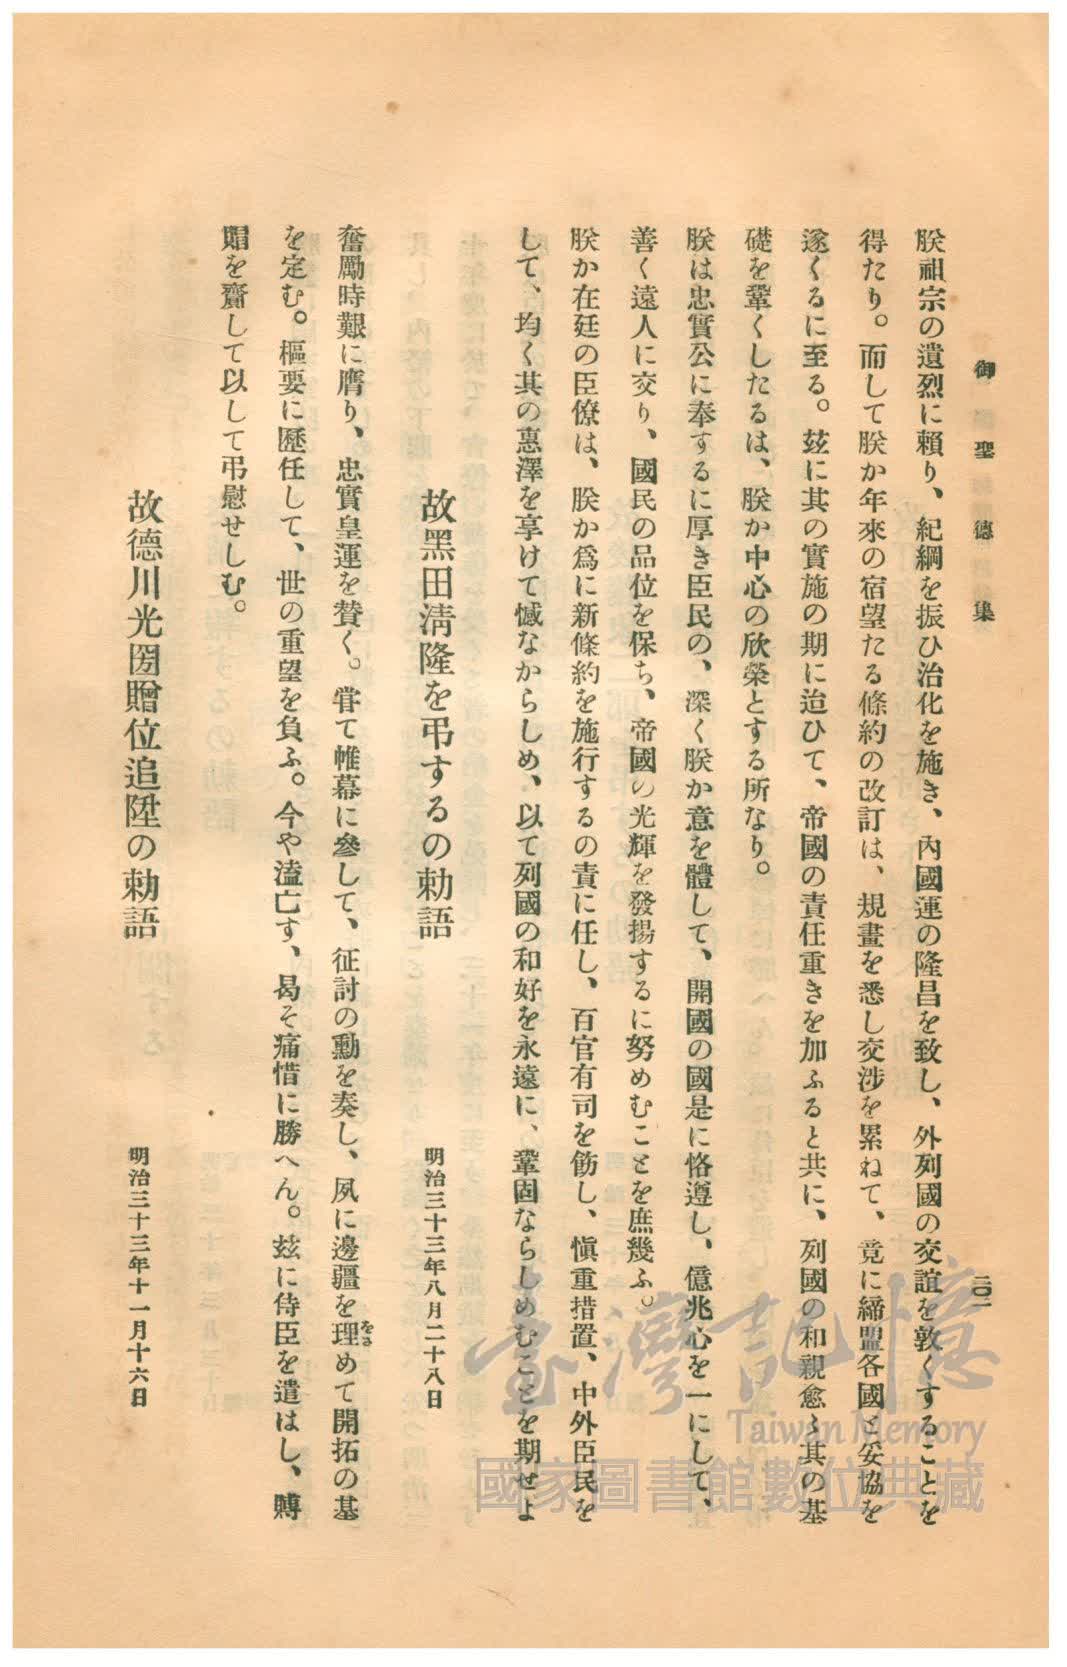 御聖德集
二〇二
朕祖宗の遺烈に賴り、紀綱を振ひ治化を施き、內國運の隆昌を致し、外列國の交誼を敦くすることを
得たり。而して朕か年來の宿望たる條約の改訂は、規畫を悉し交涉を累ねて、竟に締盟各國と妥協を
遂くるに至る。玆に其の實施の期に迨ひて、帝國の責任重きを加ふると共に、列國の和親愈〻其の基
礎を鞏くしたるは、朕か中心の欣榮とする所なり。
朕は忠實公に奉するに厚き臣民の、深く朕か意を體して、開國の國是に恪遵し、億兆心を一にして、
善く遠人に交り、國民の品位を保ち、帝國の光輝を發揚するに努めむことを庶幾ふ。
朕か在廷の臣僚は、朕か爲に新條約を施行するの責に任し、百官有司を飭し、愼重措置、中外臣民を
して、均く其の惠澤を享けて憾なからしめ、以て列國の和好を永遠に、鞏固ならしめむことを期せよ
故黑田淸隆を弔するの勅語
明治三十三年八月二十八日
奮勵時艱に膺り、忠實皇運を贊く。甞て帷幕に參して、征討の勳を奏し、夙に邊疆を理めて開拓の基
を定む。樞要に歷任して、世の重望を負ふ。今や溘亡す、曷そ痛惜に勝へん。玆に侍臣を遣はし、賻
賵を齎して以して弔慰せしむ。
故德川光圀贈位追陞の勅語
明治三十三年十一月十六日
臺灣記憶
Taiwan Memory
國家圖書館數位典藏